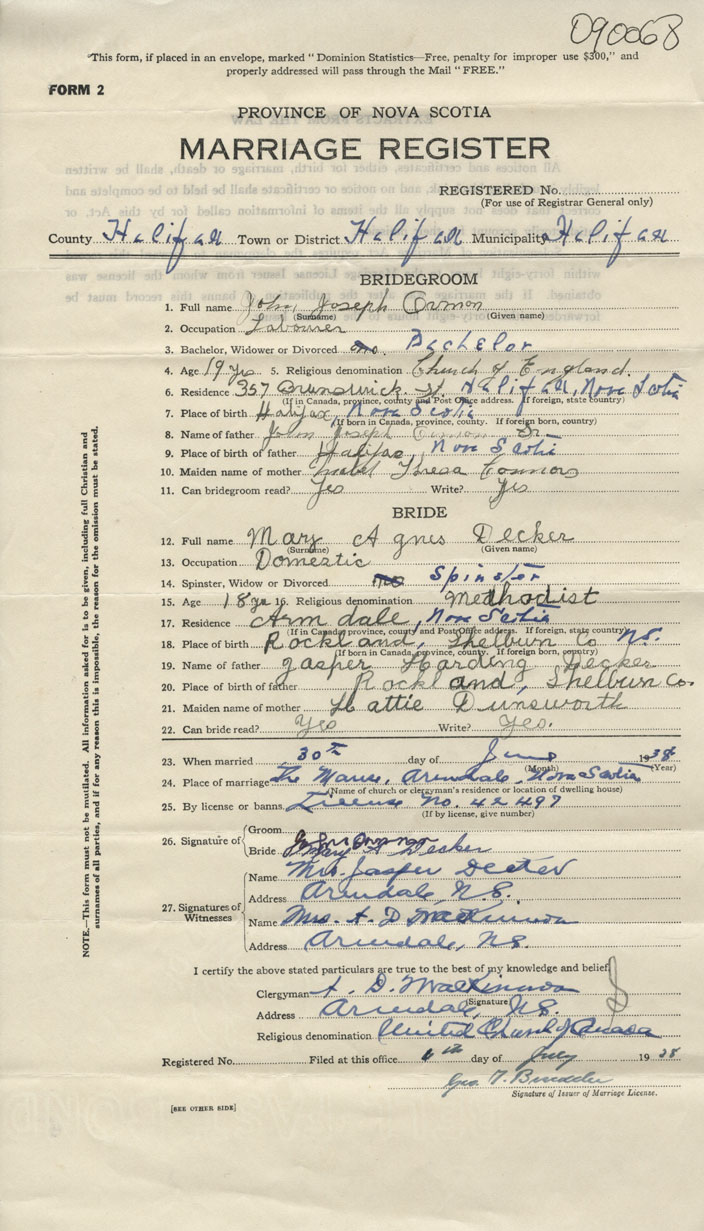 090068
"This form, if placed in an envelope, marked "Dominion Statistics—Free, penalty for improper use $300," and
properly addressed will pass through the Mail "FREE."
FORM 2
PROVINCE OF NOVA SCOTIA
MARRIAGE REGISTER
REGISTERED No.
(For use of Registrar General only)
County Halifax Town or District Halifax Municipality Halifax
BRIDEGROOM
1. Full name John Joseph
(Surname) (Given name)
2. Occupation Labourer
3. Bachelor, Widower or Divorced Bachelor
4. Age 19 yrs 5. Religious denomination Church of England.
6. Residence 357 Brunswick St. Halifax, Nova Scotia
(If in Canada, province, county and Post Office address. If foreign, state country)
7. Place of birth Halifax, Nova Scotia
(If born in Canada, province, county. If foreign born, country)
8. Name of father John Joseph Sr.
9. Place of birth of father Halifax, Nova Scotia
10. Maiden name of mother Theresa Connors
11. Can bridegroom read? Yes Write? Yes
BRIDE
12. Full name Mary Agnes Decker
(Surname) (Given name)
13. Occupation Domestic
14. Spinster, Widow or Divorced Spinster
15. Age 18 yrs 16. Religious denomination Methodist
17. Residence Armdale, Nova Scotia
(If in Canada, province, county and Post Office address. If foreign, state country)
18. Place of birth Rockland, Shelburn Co N.S.
(If born in Canada, province, county. If foreign born, country)
19. Name of father Jasper Harding Decker
20. Place of birth of father Rockland, Shelburn Co.
21. Maiden name of mother Hattie Dunsworth
22. Can bride read? Yes Write? Yes.
23. When married 30th day of June 1938
(Month) (Year)
24. Place of marriage The Manse, Armdale, Nova Scotia
(Name of church or clergyman's residence or location of dwelling house)
25. By license or banns License No. 42497
(If by license, give number)
26. Signature of
Groom
Bride Mary A Decker
27. Signatures of Witnesses
Name Mrs Jasper Decker
Address Armdale, N.S.
Name Mrs. A. D. MacKinnon
Address Armdale, N.S.
I certify the above stated particulars are true to the best of my knowledge and belief,
Clergyman A. D. MacKinnon
(Signature)
Address Armdale, N.S.
Religious denomination United Church of Canada
Registered No. Filed at this office day of July 1938
Geo. T.
Signature of Issuer of Marriage License.
[SEE OTHER SIDE]
NOTE.—This form must not be mutilated. All information asked for is to be given, including full Christian and
surnames of all parties, and if for any reason this is impossible, the reason for the omission must be stated.